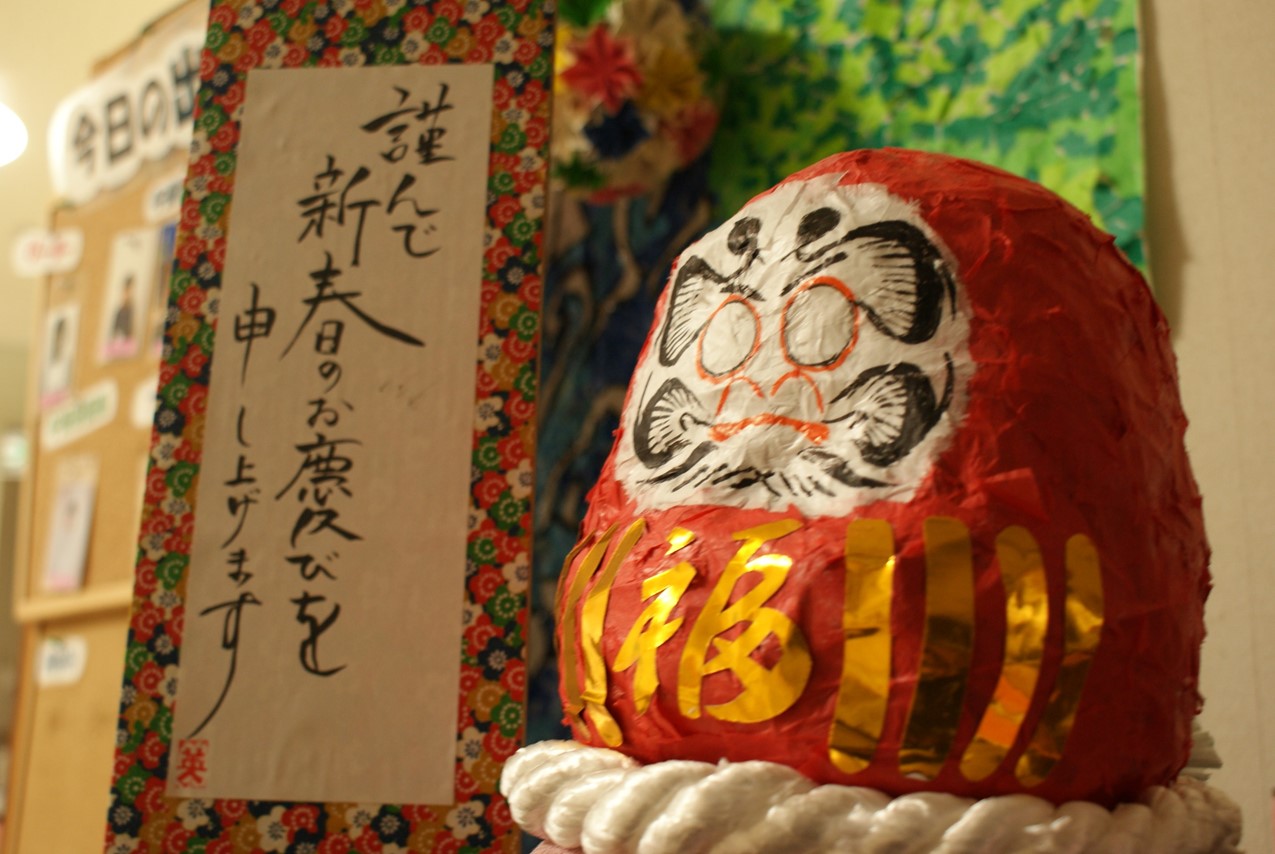 今日の出
謹んで
新春のお慶びを
申し上げます
英
福